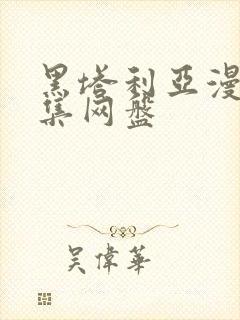 黑塔利亚漫
集网盘
吴偉華